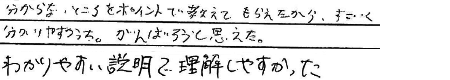 分からないところをポイントで教えてもらえたから、すごく
分かりやすかった。がんばろうと思えた。
わかりやすい説明で理解しやすかった